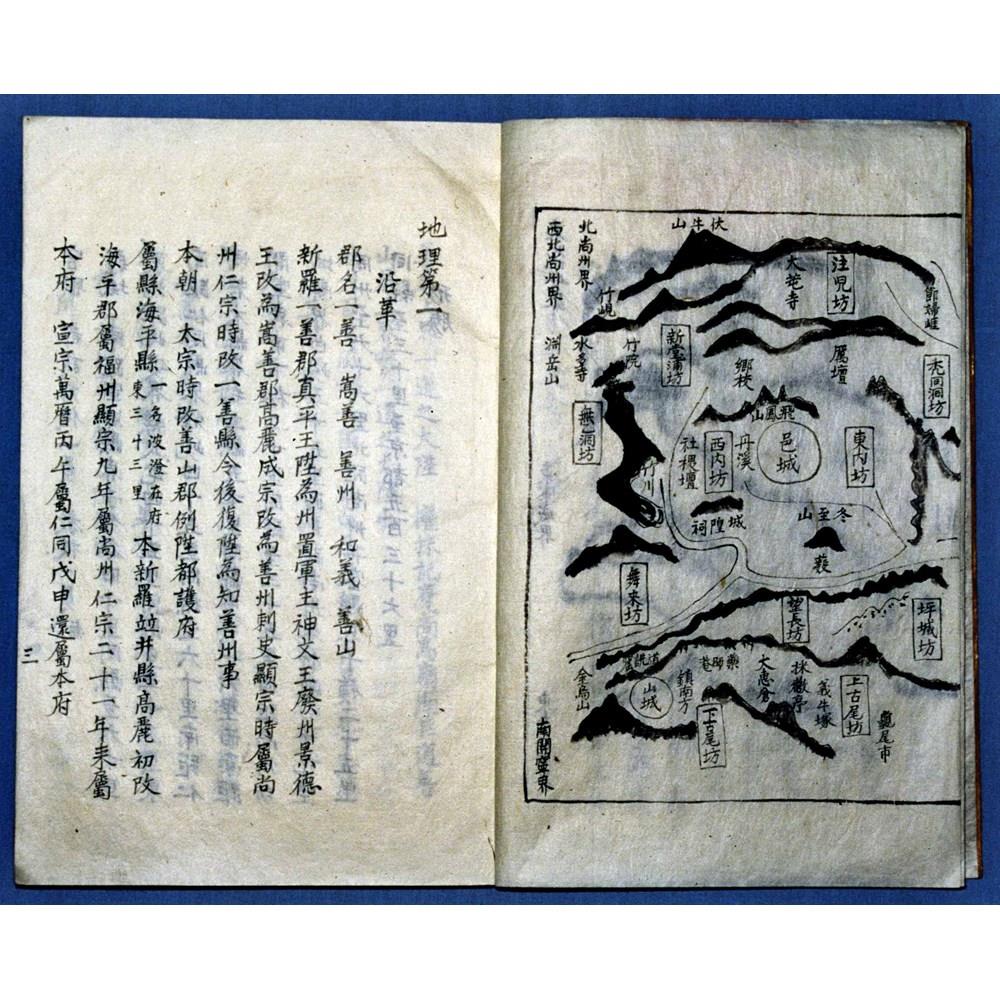 節婦峴
注兒坊
大芚寺
伏牛山
北尚州界
西北尚州界
竹峴
厲壇
鄉校
新堂浦坊
竹院
水多寺
淵岳山
飛鳳山
邑城
東內坊
丹溪
西內坊
社稷壇
竹川
無洞坊
冬至山
城隍祠
舞來坊
坪城坊
望長坊
上古尾坊
義牛塚
採薇亭
大惠倉
藥師菴
道詵窟
鎮南方
下古尾坊
山城
金烏山
龜尾市
南開寧界
地理第一
沿革
郡名一善 嵩善 善州 和義 善山
新羅一善郡真平王陞為州置軍主神文王廢州景德
王改為嵩善郡高麗成宗改為善州刺史顯宗時屬尚
州仁宗時改一善縣令後復陞為知善州事
本朝 太宗時改善山郡例陞都護府
屬縣海平縣一名波澄在府東三十三里本新羅竝井縣高麗初改
海平郡屬福州顯宗九年屬尚州仁宗二十一年來屬
本府 宣宗萬曆丙午屬仁同戊申還屬本府
三